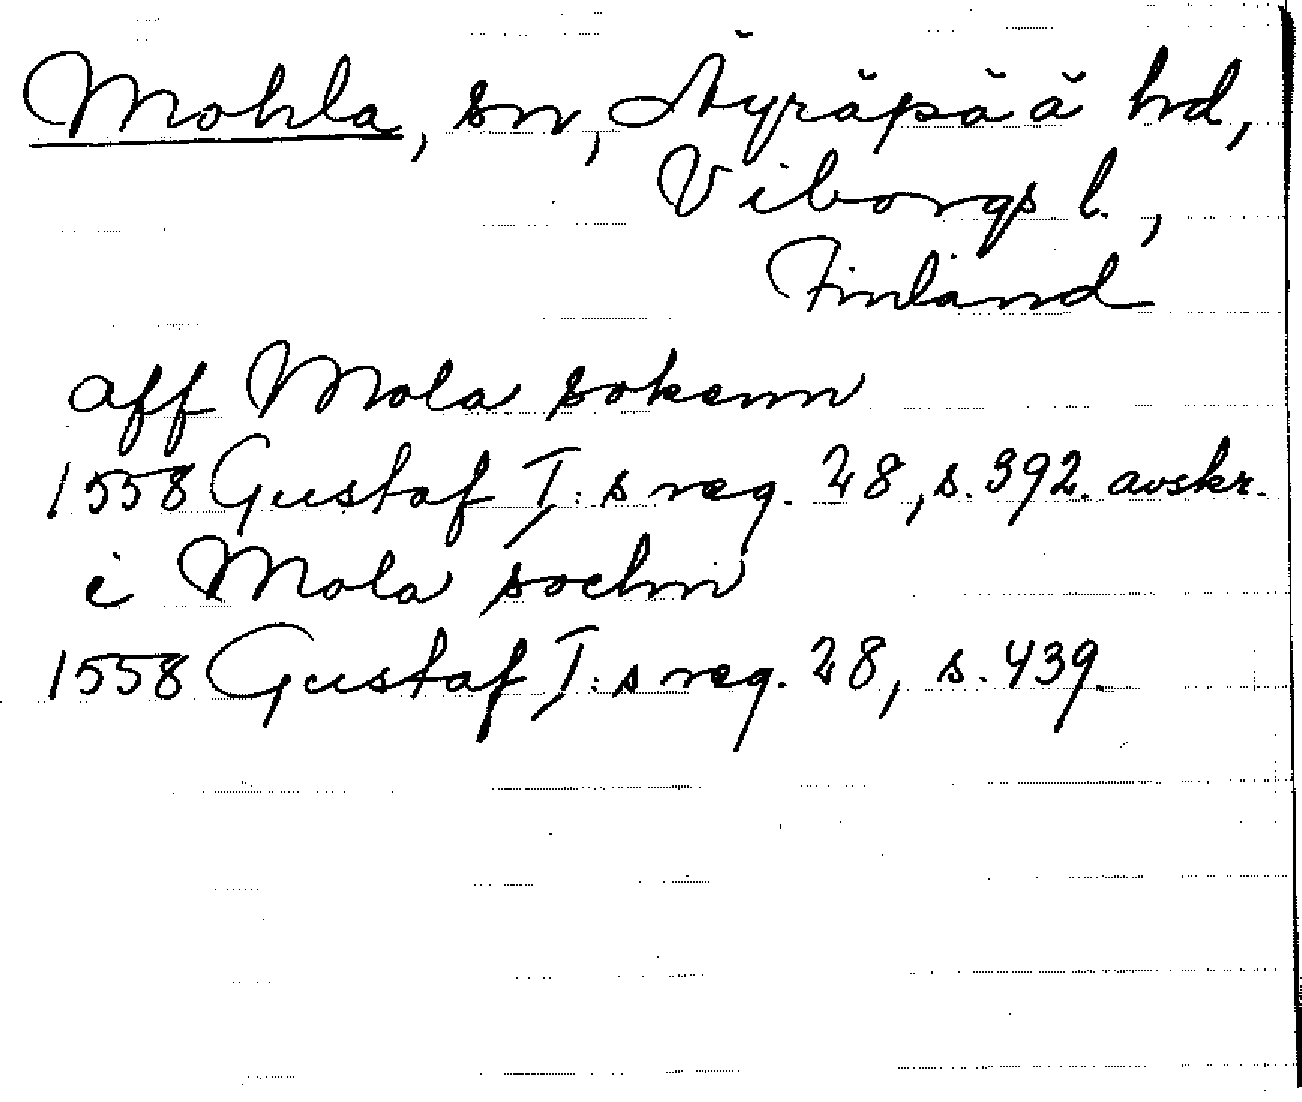 Mohla, sn, Äyräpää hrd,
Viborgs l.,
Finland
aff Mola sokenn
1558 Gustaf I:s reg. 28, s. 392. avskr.
i Mola sochn
1558 Gustaf I:s reg. 28, s. 439.